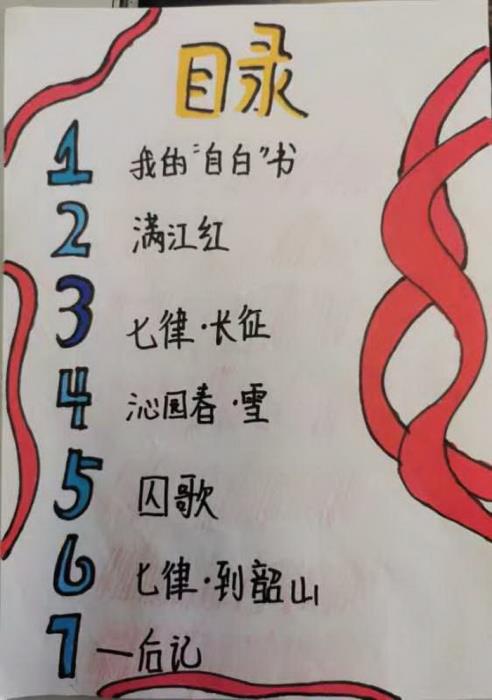 目录
1 我的“自白”书
2 满江红
3 七律·长征
4 沁园春·雪
5 囚歌
6 七律·到韶山
7 —后记